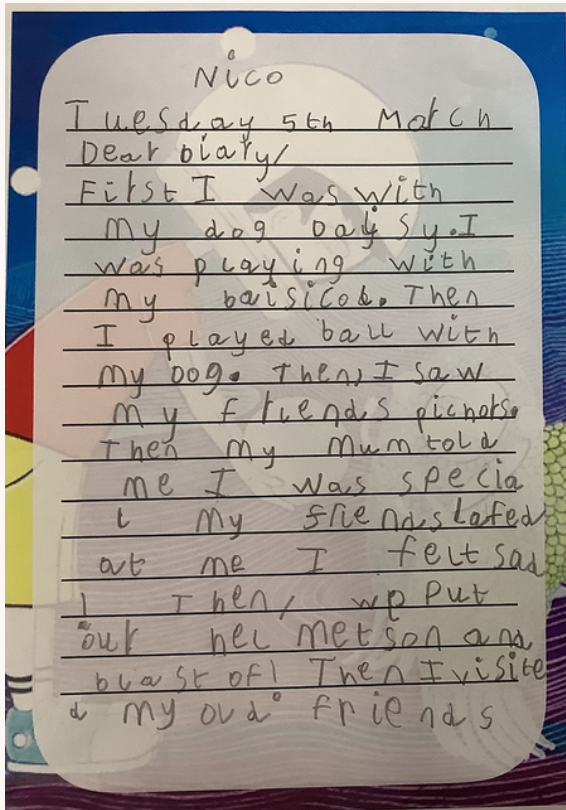 Nico
Tuesday 5th March
Dear Diary/
First I was with
my dog Daysy. I
was playing with
my baisicol. Then
I played ball with
my Dog. Then, I saw
my friends pichors.
Then my Mum told
me I was specia
l my friends lafed
at me I felt sad
! Then, we put
our hel metson and
blast of! Then I visite
d my old friends